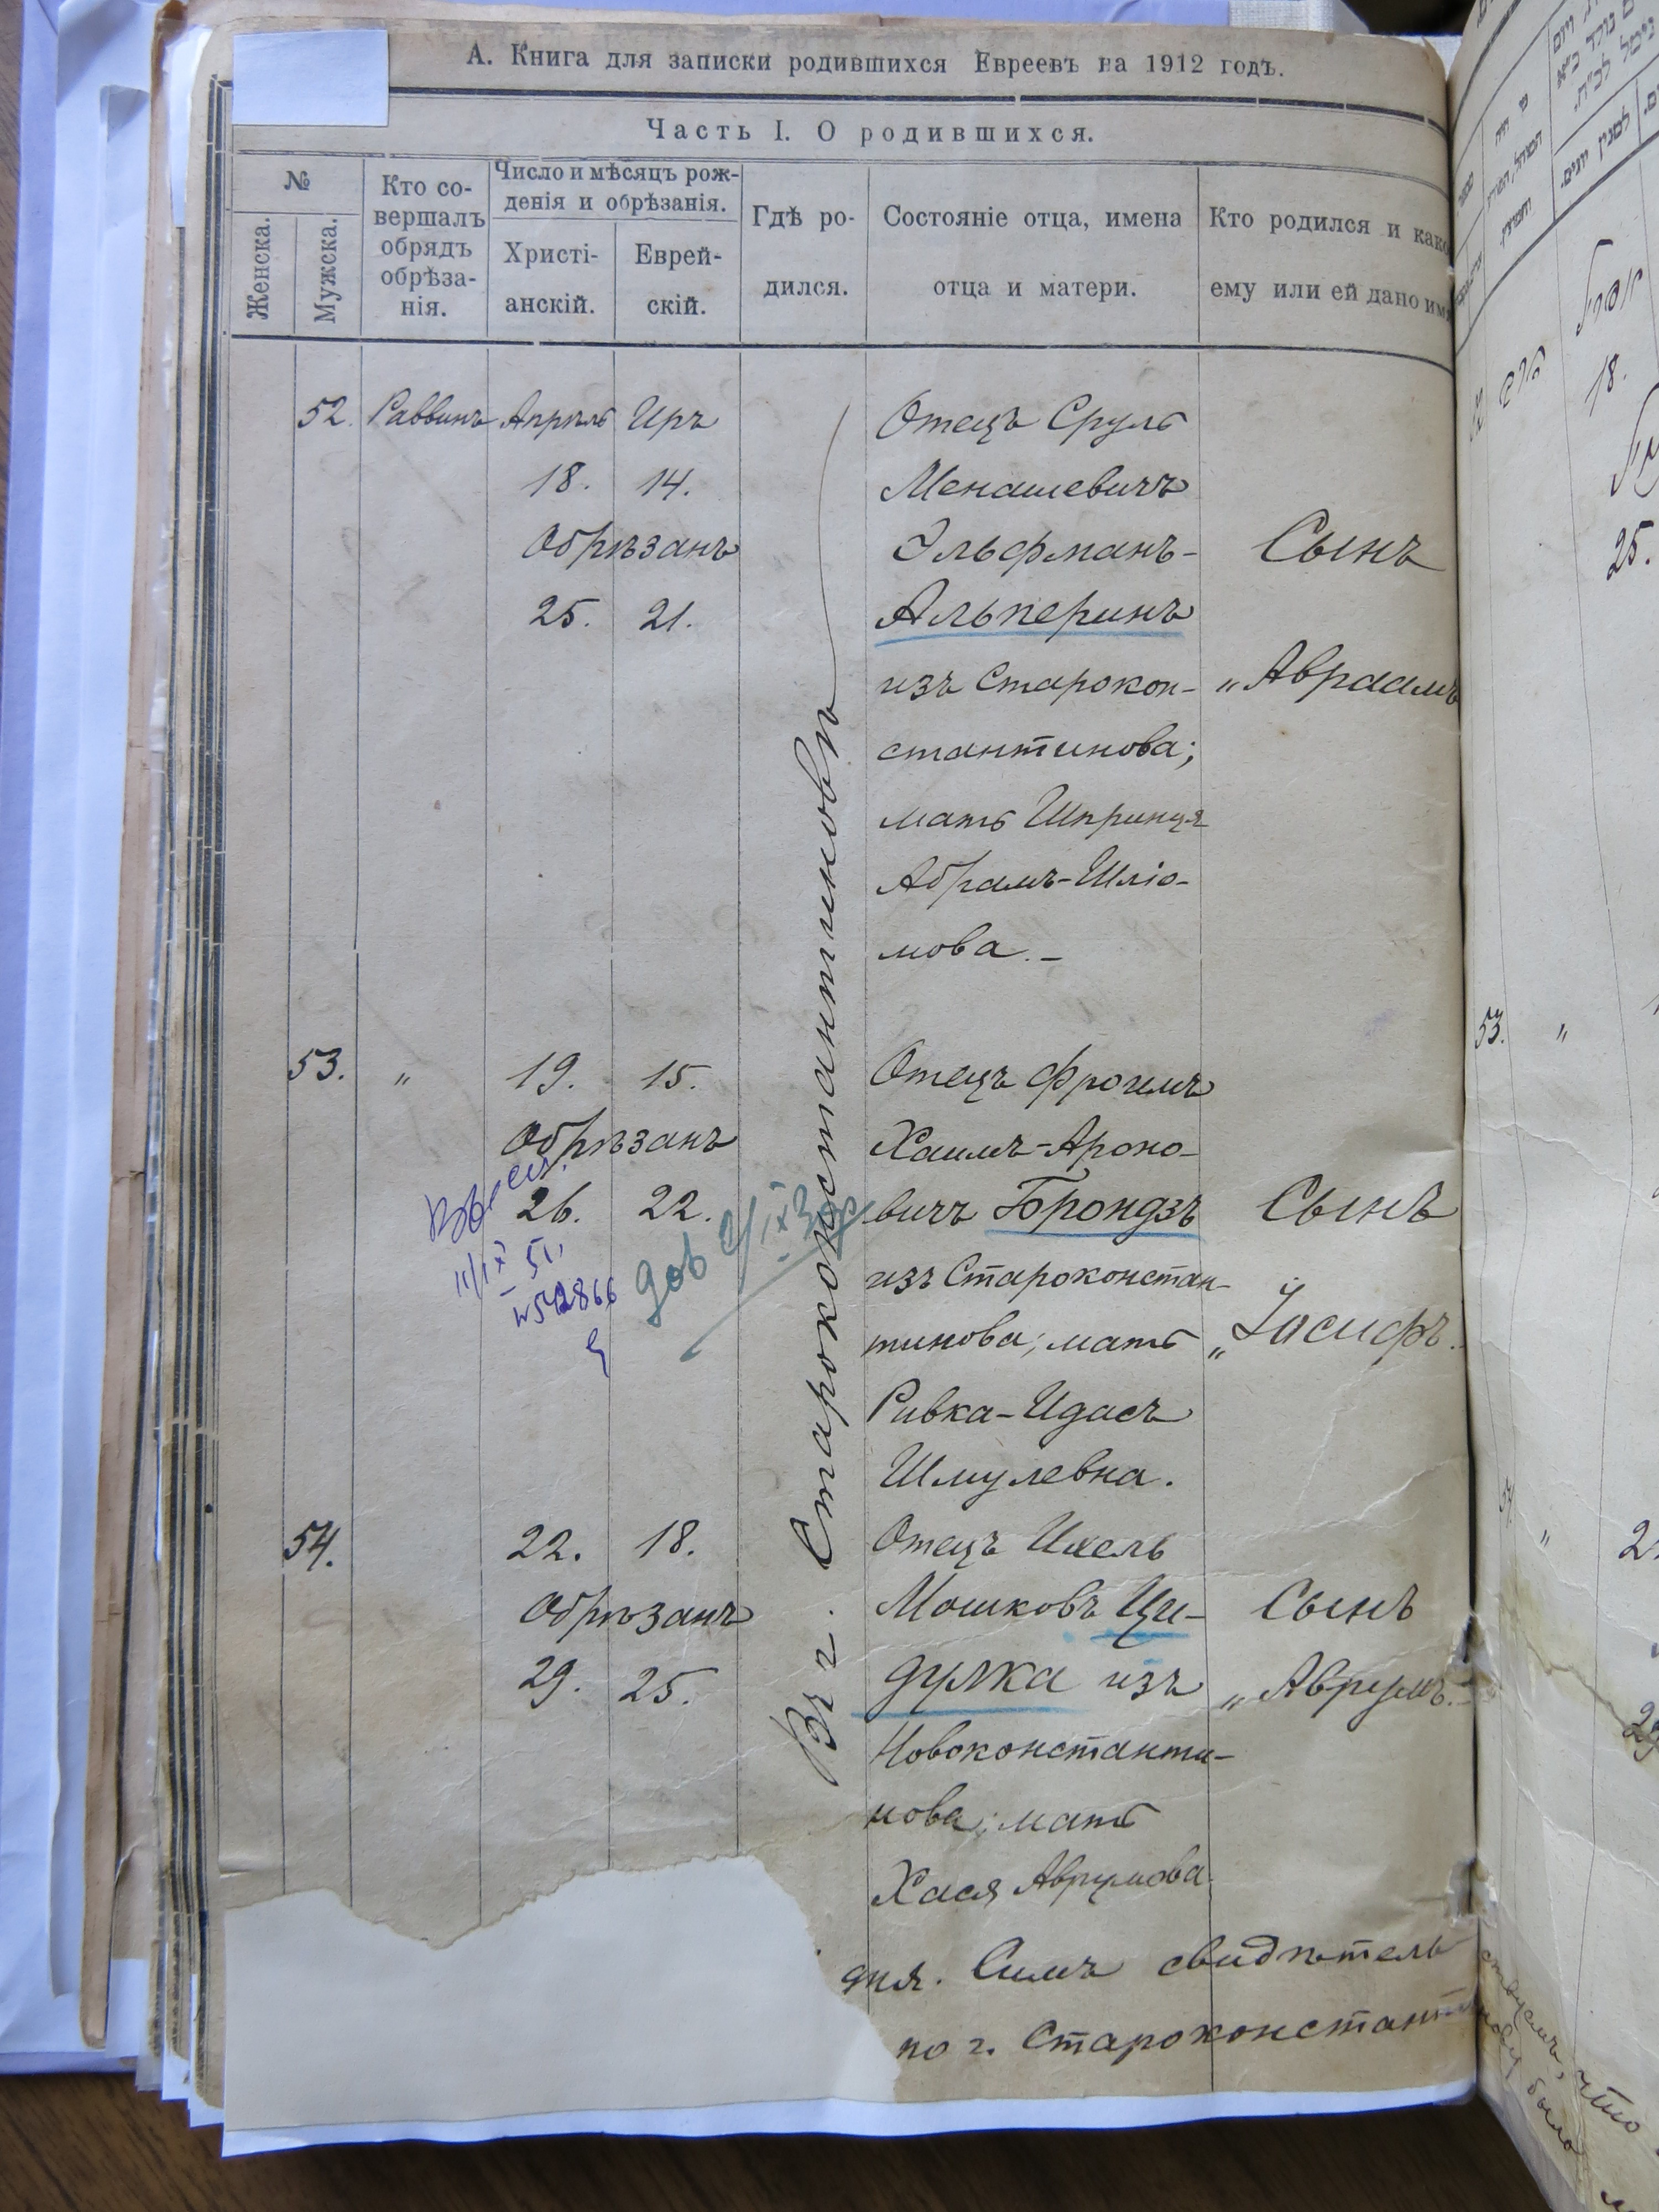 А. Книга для записки родившихся Евреевъ на 1912 годъ.
Часть I. О родившихся.
№
Женска.
Мужска.
Кто со-
вершалъ
обрядъ
обрѣза-
нія.
Число и мѣсяцъ рож-
денія и обрѣзанія.
Христі-
анскій.
Еврей-
скій.
Гдѣ ро-
дился.
Состояніе отца, имена
отца и матери.
Кто родился и како
ему или ей дано имя
52. Раввинъ Апрѣль Иръ
18. 14.
Обрѣзанъ
25. 21.
Въ г. Староконстантиновѣ
Отецъ Сруль
Менашевичъ
Эльфманъ-
Альперинъ
изъ Старокон-
стантинова;
мать Шпринця
Абрамъ-Шліо-
мова.-
Сынъ
„Авраамъ
53. „ 19. 15.
Обрѣзанъ
26. 22.
11/IX 51.
№542866
Отецъ Фроимъ
Хаимъ-Ароно-
вичъ Брондзъ
изъ Староконстан-
тинова; мать
Ривка-Идасъ
Шмулевна.
Сынъ
„Іосифъ.
54. 22. 18.
Обрѣзанъ
29. 25.
Отецъ Ихель
Мошковъ Ци-
дулка изъ
Новоконстанти-
нова; мать
Хася Аврумова
Сынъ
„Аврумъ.-
дня. Симъ свидѣтель
по г. Староконстант
18.
25.
53. „